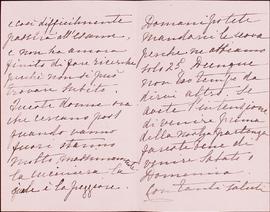 e così difficilmente
e non ha ancora
finito di fare ricerche
perchè non si può
trovare subito.
Queste donne ora
che cercano post
quando vanno
fuori stanno
molto
la cucina
è la peggiore.
Domani potete
mandarci le uova
perche ne abbiamo
solo 25. Dunque
non ho tempo da
dirvi altro. Se
avete l'intenzione
di venire prima
della nostra partenza
fareste bene di
venire Sabato o
Domenica.
Con tanti saluti